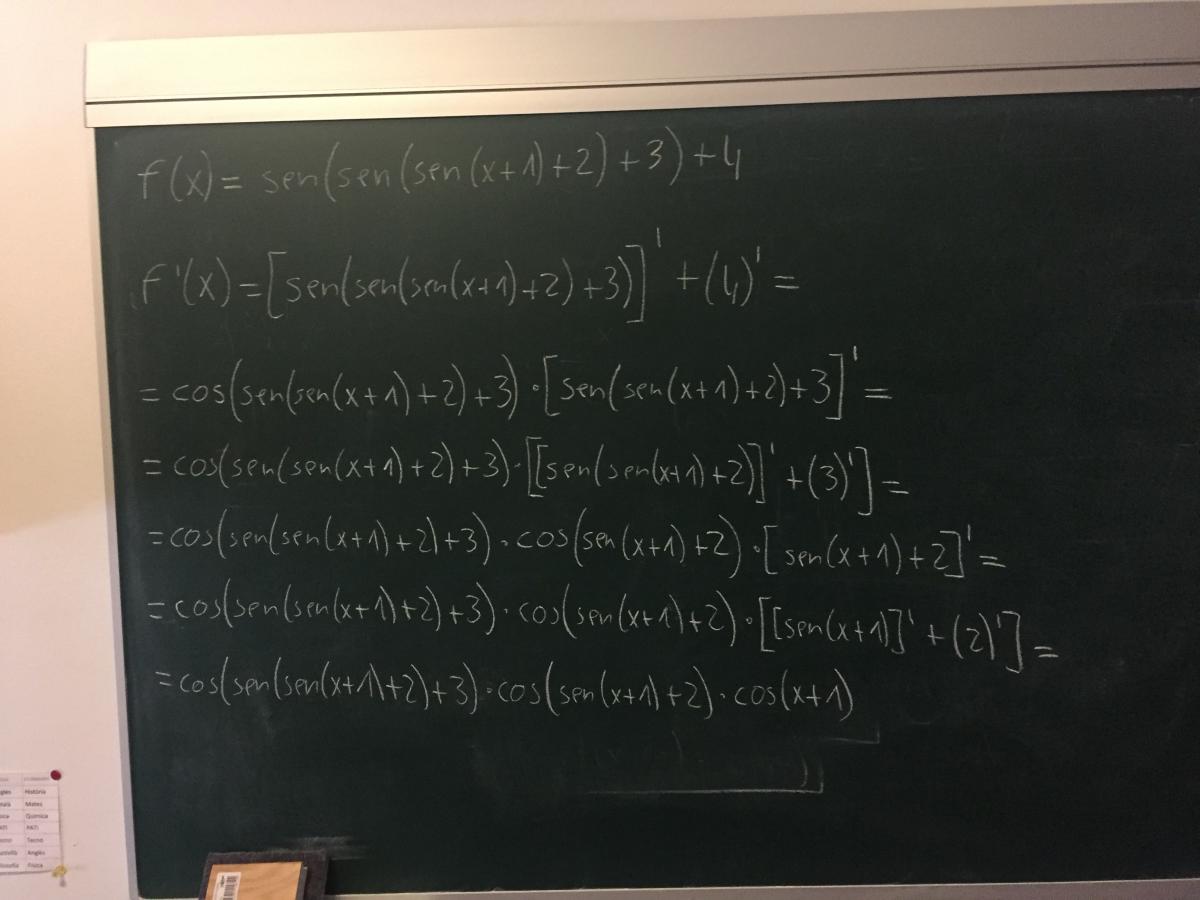 f(x) = sen(sen(sen(x+1)+2)+3)+4
f'(x) = [sen(sen(sen(x+1)+2)+3)]' + (4)' =
= cos(sen(sen(x+1)+2)+3)·[sen(sen(x+1)+2)+3]' =
= cos(sen(sen(x+1)+2)+3)·[[sen(sen(x+1)+2)]' + (3)'] =
= cos(sen(sen(x+1)+2)+3)·cos(sen(x+1)+2)·[sen(x+1)+2]' =
= cos(sen(sen(x+1)+2)+3)·cos(sen(x+1)+2)·[[sen(x+1)]' + (2)'] =
= cos(sen(sen(x+1)+2)+3)·cos(sen(x+1)+2)·cos(x+1)
Història
Mates
Química
PATI
Tecno
Anglès
Física